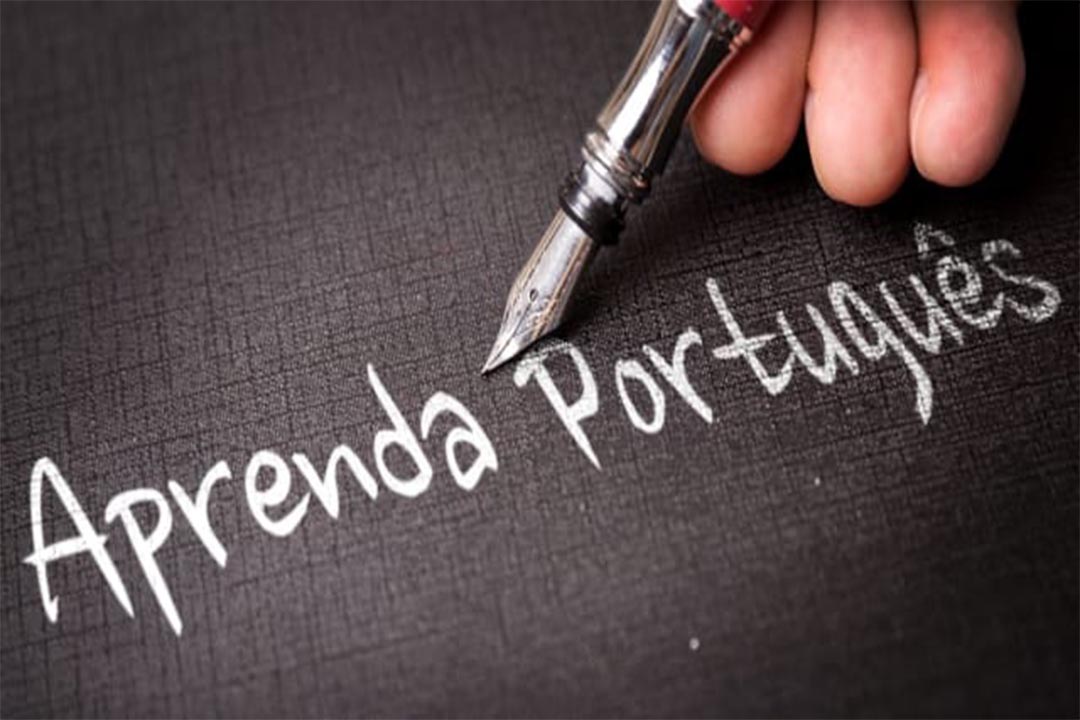 Aprenda Português